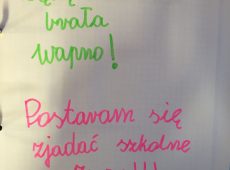 brała
wapno!
Postaram się
zjadać szkolne